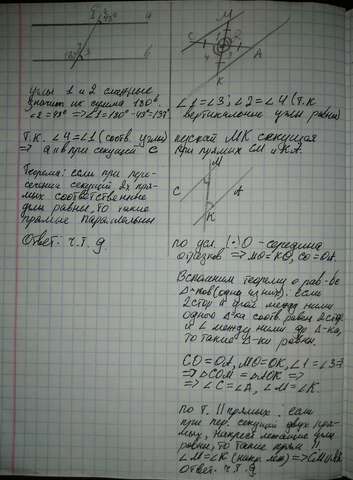 c
1
2 43°
a
137°
3
b
углы 1 и 2 смежные
значит их сумма 180°.
∠2=43° => ∠1=180°-43°=137°
Т.К. ∠4=∠1 (соотв. углы)
=> a ∥ b при секущей c
Теорема: если при пере-
сечении секущей 2х пря-
мых соответственные
углы равны, то такие
прямые параллельны
Ответ: ч.т.д
M
C
A
K
∠1=∠3; ∠2=∠4 (т.к
вертикальные углы равны)
пускай MK секущая
при прямых CM и KA.
M
C
A
K
по усл. (•)O - середина
отрезков => MO=KO, CO=OA.
Вспомним теорему о рав-ве
Δ-ков (одна из них): если
2 стор и угол между ними
одного Δ-ка соотв равен 2 стор
и ∠ между ними др Δ-ка,
то такие Δ-ки равны.
CO=OA, MO=OK, ∠1=∠3 =>
=> ΔCOM=ΔAOK =>
=> ∠C=∠A, ∠M=∠K.
По т. ∥ прямых: если
при пер. секущей двух пря-
мых, накрест лежащие углы
равны, то такие прям ∥.
∠M=∠K (накр. леж) => CM∥AK
Ответ: ч.т.д